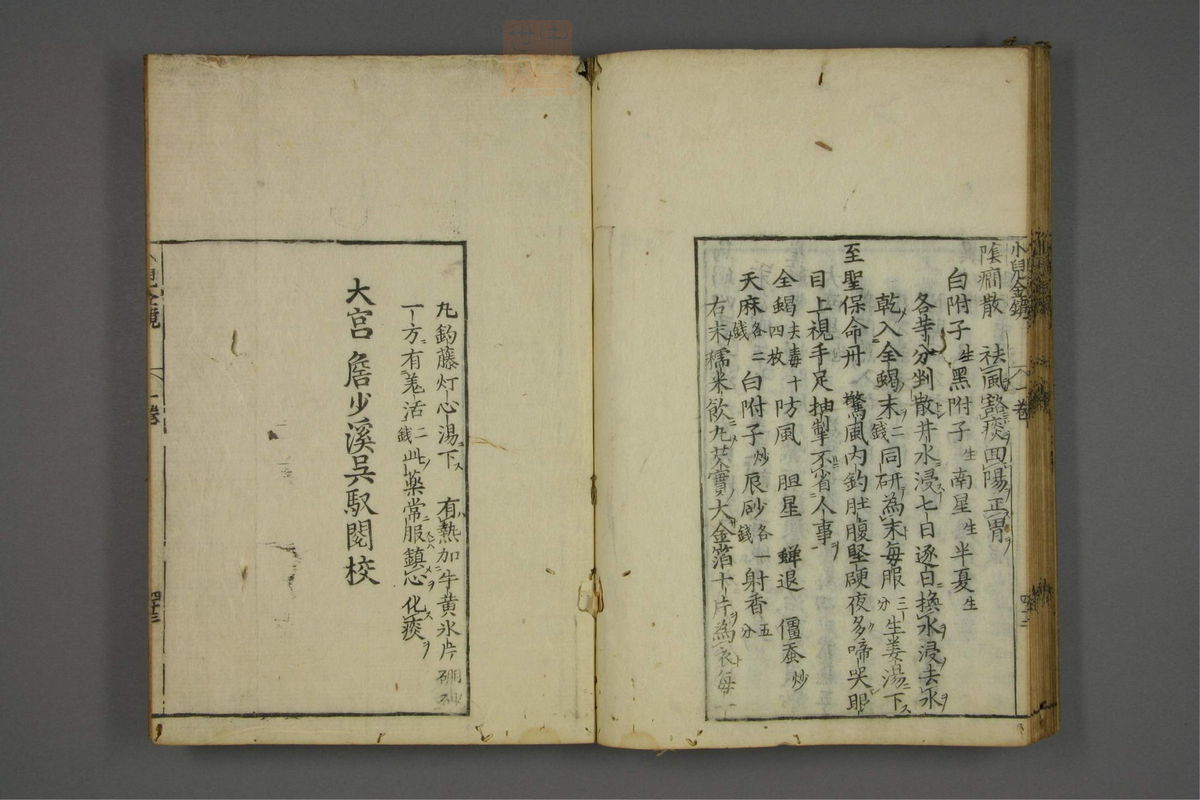 小兒金鏡 一卷 四十二
陰癎散 祛風豁痰回陽正胃ヲ
白附子生黑附子生南星生半夏生
各等分剉散井水浸七日逐日換水浸去水
乾入全蝎末二錢同研為末每服三分生姜湯下
至聖保命丹 驚風内釣肚腹堅硬夜多啼哭眼
目上視手足抽掣不省人事
全蝎去毒十四枚 防風 胆星 蟬退 僵蚕炒
天麻各二錢 白附子炒 辰砂各一錢 射香五分
右末糯米飲丸芡實大金箔十片為衣每一
丸釣藤灯心湯下 有熱加牛黄氷片硼砂
一方有羗活二錢此藥常服鎮心化痰
大宮 詹少溪吳馭閱校
小兒金鏡 一卷 四十三